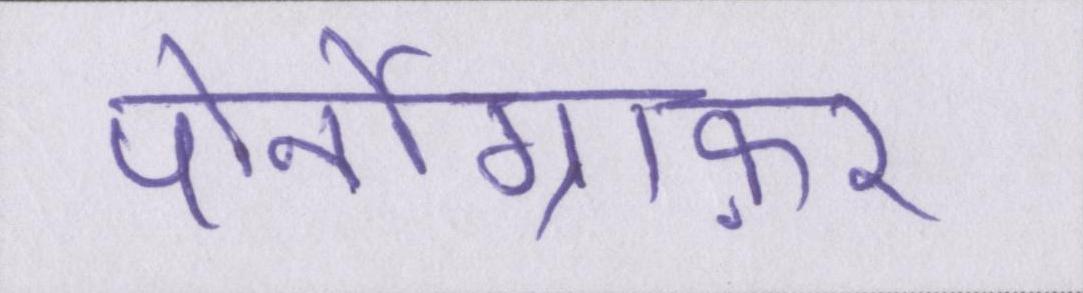 पोर्नोग्राफ़र